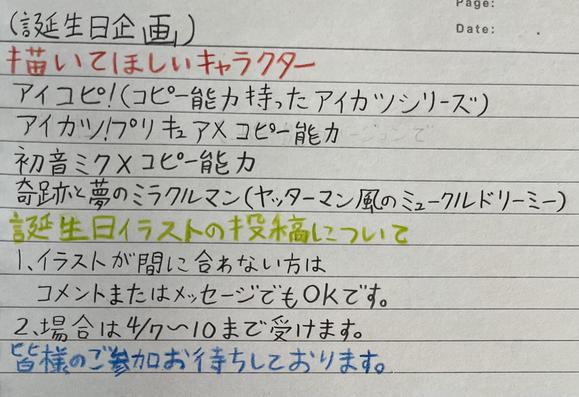 Page:
Date:
(誕生日企画)
描いてほしいキャラクター
アイコピ!(コピー能力持ったアイカツシリーズ)
アイカツ!プリキュア×コピー能力
初音ミク×コピー能力
奇跡と夢のミラクルマン(ヤッターマン風のミュークルドリーミー)
誕生日イラストの投稿について
1、イラストが間に合わない方は
コメントまたはメッセージでもOKです。
2、場合は4/7〜10まで受けます。
皆様のご参加お待ちしております。